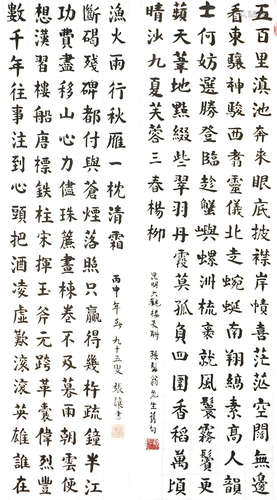 五百里滇池奔來眼底披襟岸幘喜茫茫空闊無邊
看東驤神駿西翥靈儀北走蜿蜒南翔縞素高人韻
士何妨選勝登臨趁蟹嶼螺洲梳裹就風鬟霧鬢更
蘋天葦地點綴些翠羽丹霞莫孤負四圍香稻萬頃
晴沙九夏芙蓉三春楊柳
昆明大觀樓長聯 孫髯翁先生舊句
數千年往事注到心頭把酒凌虛歎滾滾英雄誰在
想漢習樓船唐標鐵柱宋揮玉斧元跨革囊偉烈豐
功費盡移山心力儘珠簾畫棟卷不及暮雨朝雲便
斷碣殘碑都付與蒼煙落照只贏得幾杵疏鐘半江
漁火兩行秋雁一枕清霜
丙申年 九十五叟 張 書